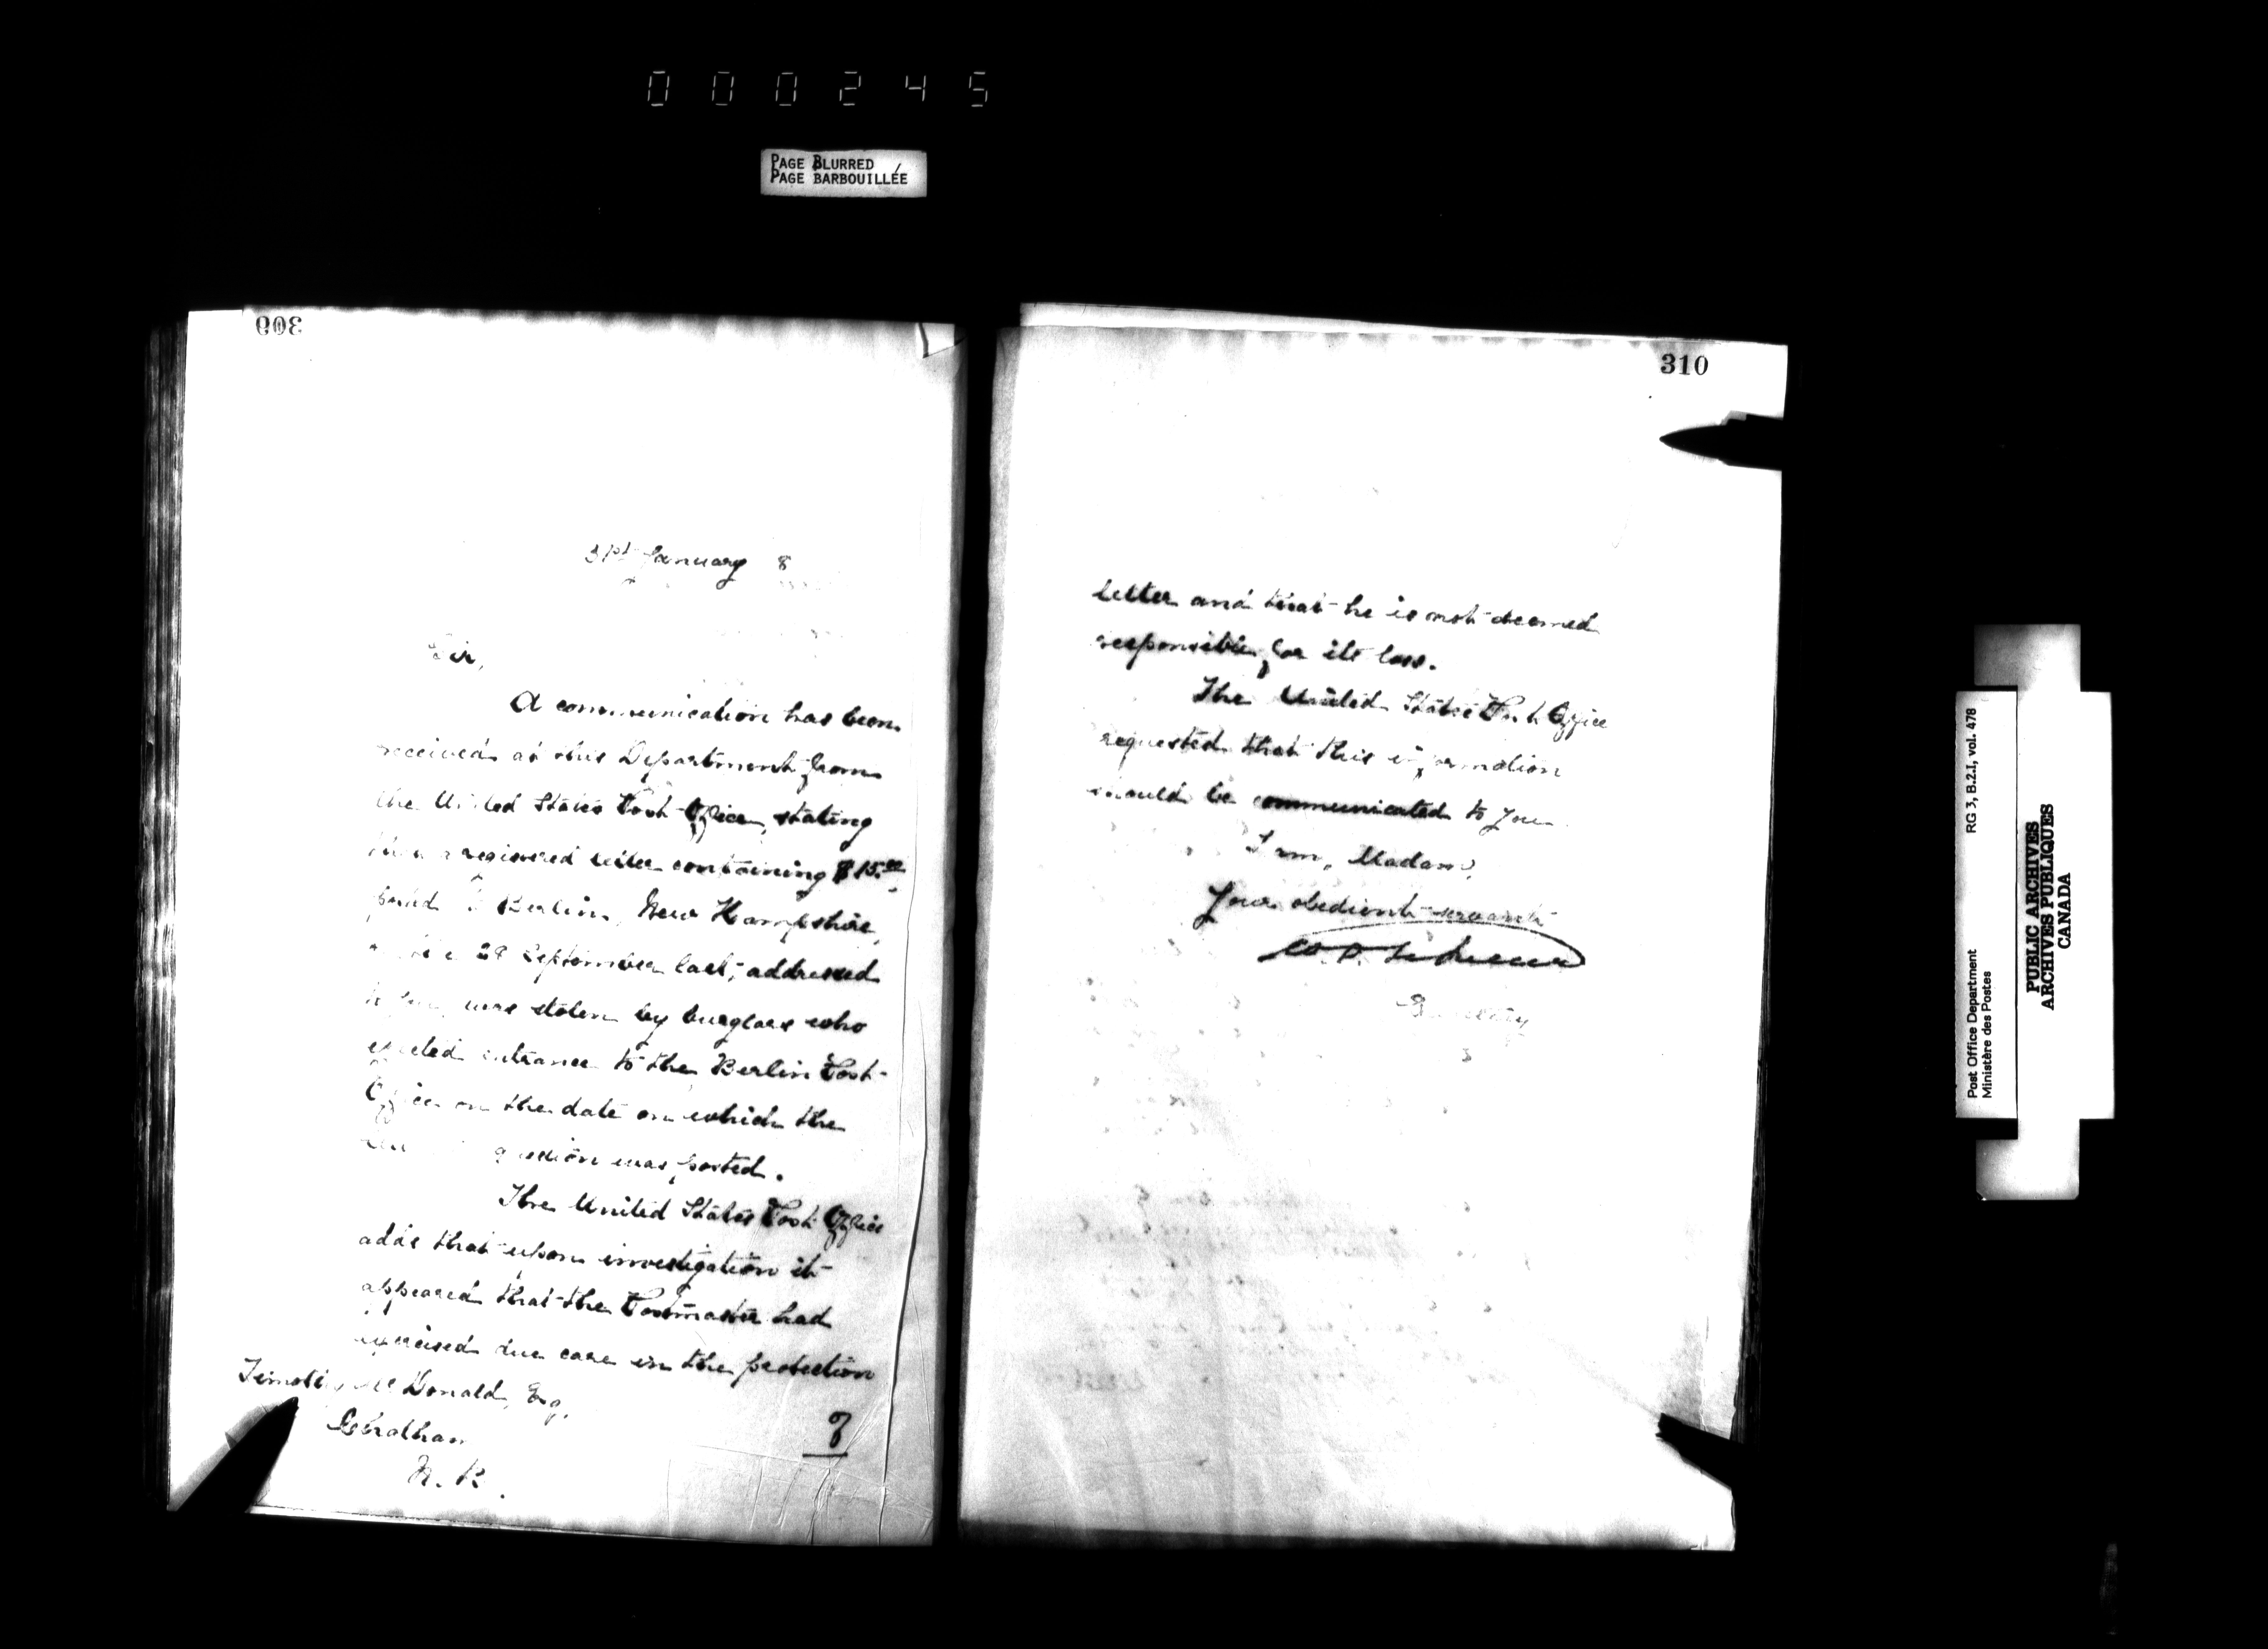 000245
PAGE BLURRED
PAGE BARBOUILLÉE
309
31st January 8
Sir,
A communication has been
received at this Department from
the United States Post Office, stating
that a registered letter containing $15.00
posted Berlin, New Hampshire,
28 September last, addressed
to you, was stolen by burglars who
effected entrance to the Berlin Post
Office on the date on which the
question was posted.
The United States Post Office
adds that upon investigation it
appeared that the Postmaster had
exercised due care in the protection
of
Timothy McDonald, Esq.
N. B.
310
letter and that he is not deemed
responsible for its loss.
The United States Post Office
requested that this information
should be communicated to you.
I am, Madam,
Your obedient servant
Secretary
Post Office Department RG 3, B.2.I, vol. 478
Ministère des Postes
PUBLIC ARCHIVES
ARCHIVES PUBLIQUES
CANADA